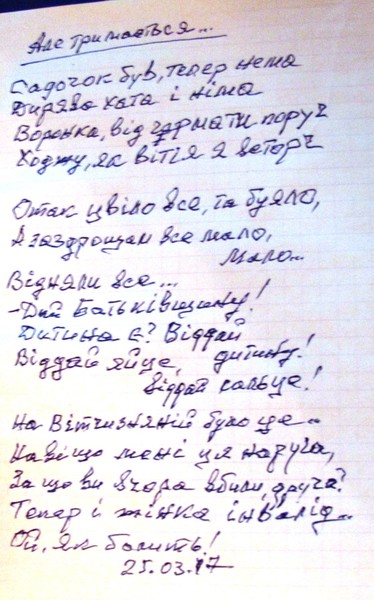 Але тримається...
Садочок був, тепер нема
Дирява хата і німа
Воронка, від гармати поруч
Ходжу, як вітія я вторч
Отак цвіло все, та буяло,
А заздрощам все мало,
Мало...
Відняли все...
- Дай Батьківщину!
Дитина є? Віддай
Віддай яйце, дитину!
віддай кольце!
На Вітчизняній було це..
Навіщо мені ця наруга,
За що ви вчора вбили друга?
Тепер і жінка інвалід..
Ой, як болить!
25.03.17